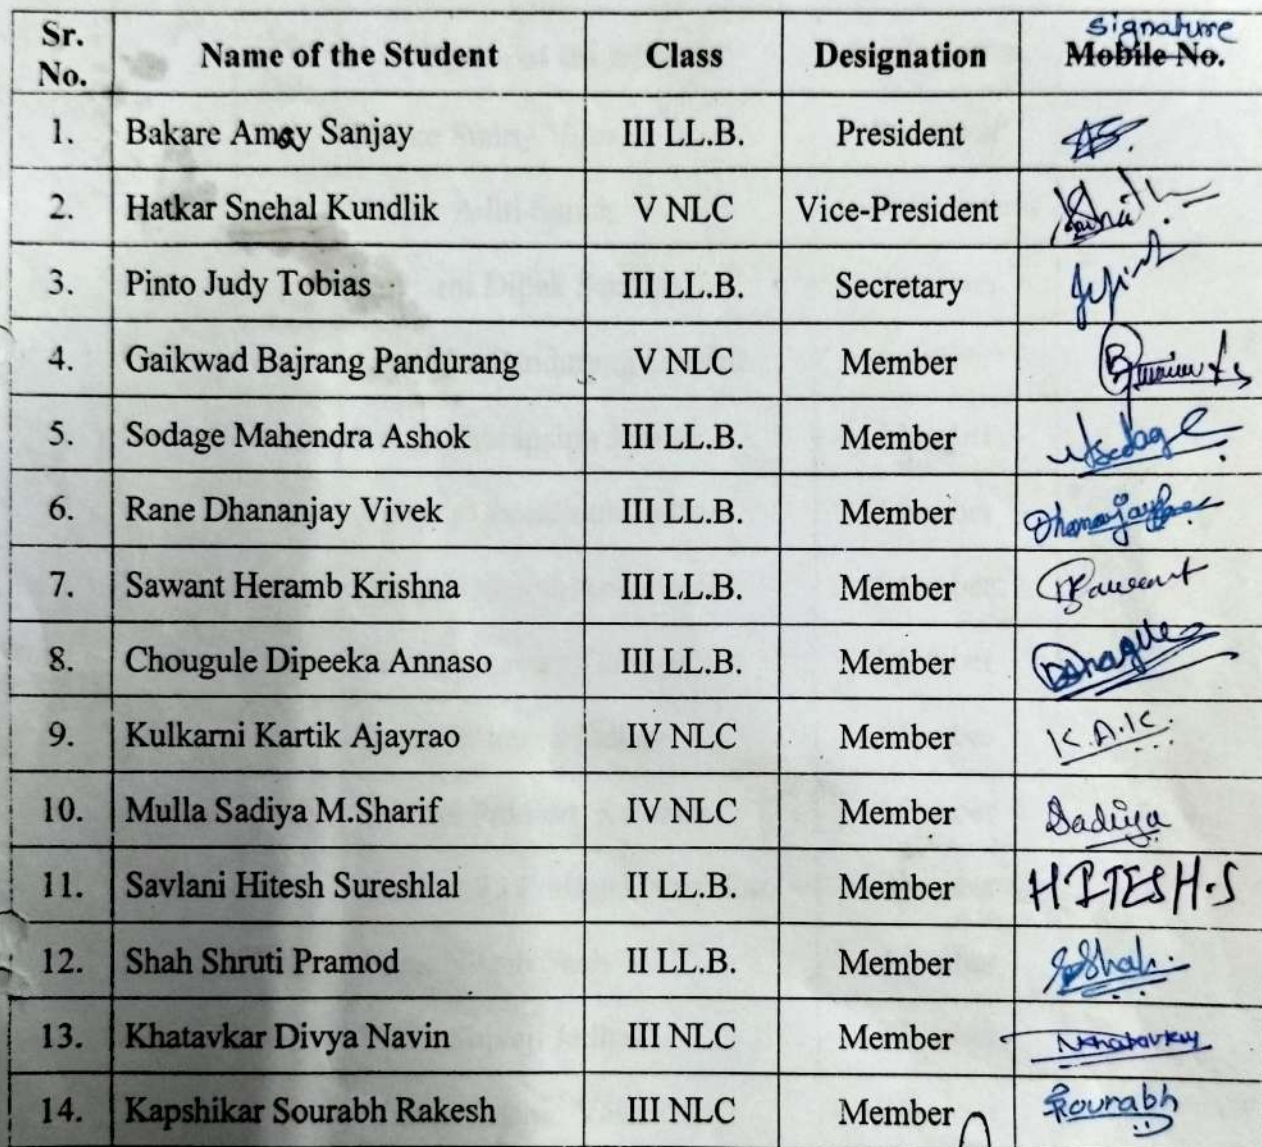 Sr. No. Name of the Student Class Designation Signature Mobile No.
1. Bakare Amey Sanjay III LL.B. President
2. Hatkar Snehal Kundlik V NLC Vice-President
3. Pinto Judy Tobias III LL.B. Secretary
4. Gaikwad Bajrang Pandurang V NLC Member
5. Sodage Mahendra Ashok III LL.B. Member
6. Rane Dhananjay Vivek III LL.B. Member
7. Sawant Heramb Krishna III LL.B. Member
8. Chougule Dipeeka Annaso III LL.B. Member
9. Kulkarni Kartik Ajayrao IV NLC Member K.A.K.
10. Mulla Sadiya M.Sharif IV NLC Member Sadiya
11. Savlani Hitesh Sureshlal II LL.B. Member HITESH.S
12. Shah Shruti Pramod II LL.B. Member
13. Khatavkar Divya Navin III NLC Member
14. Kapshikar Sourabh Rakesh III NLC Member Sourabh